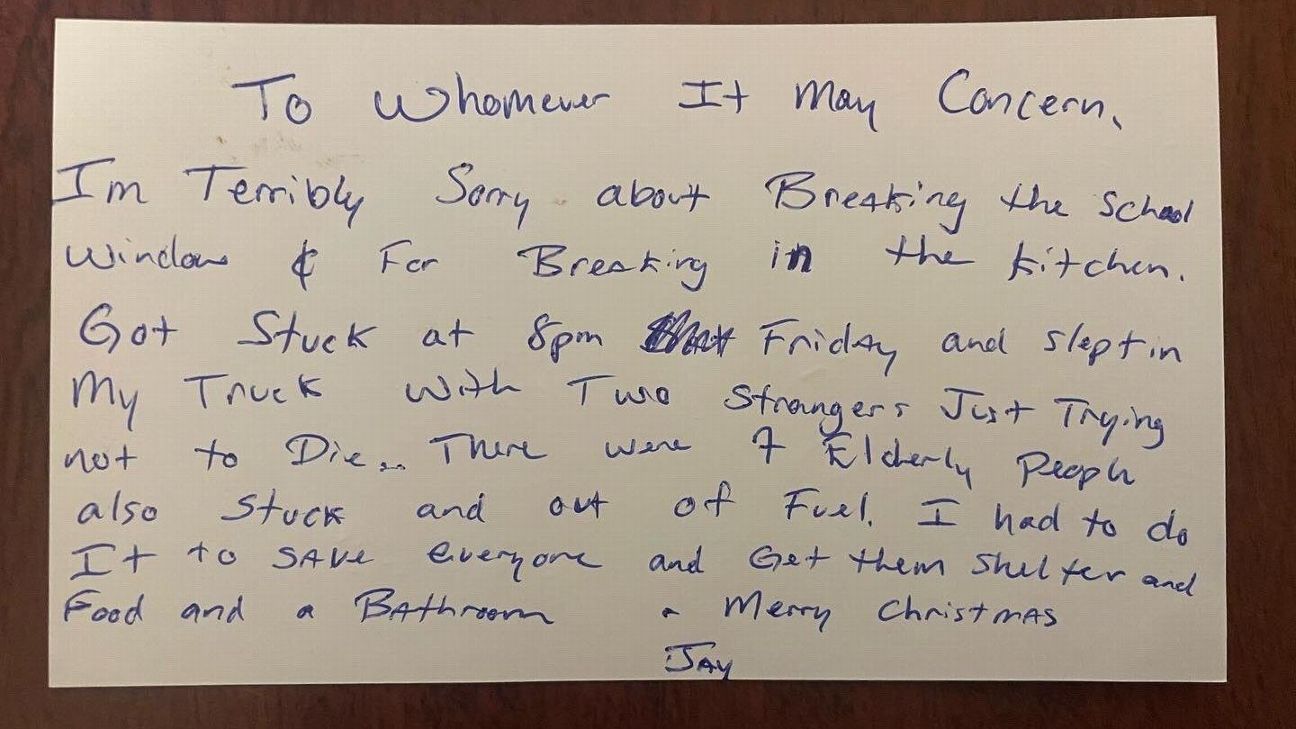 To Whomever It May Concern,
Im Terribly Sorry about Breaking the School
Window & For Breaking in the Kitchen.
Got Stuck at 8pm Friday and slept in
My Truck with Two Strangers Just Trying
not to Die.. There were 7 Elderly People
also Stuck and out of Fuel. I had to do
It to SAVE everyone and Get them shelter and
Food and a Bathroom - Merry Christmas
JAY